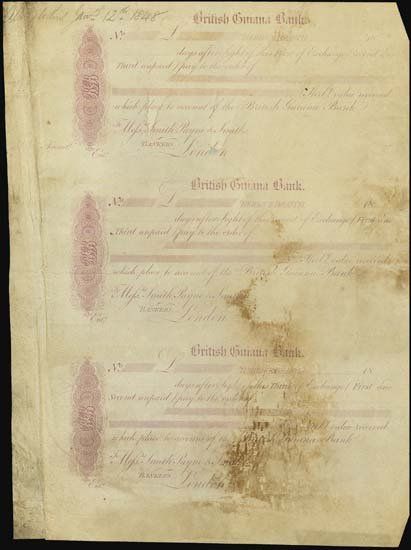 Jany 12th 1848
British Guiana Bank.
No £ 18
days after sight of this First of Exchange (Second and
Third unpaid) pay to the order of
Sterl'g value received
which place to account of the British Guiana Bank
To Messrs Smith Payne & Smiths
BANKERS,
London
British Guiana Bank.
No £ 18
days after sight of this Second of Exchange (First and
Third unpaid) pay to the order of
Sterl'g value received
which place to account of the British Guiana Bank
To Messrs Smith Payne & Smiths
BANKERS,
London
British Guiana Bank.
No £ 18
days after sight of this Third of Exchange (First and
Second unpaid) pay to the order of
value received
which place to account of the British Guiana Bank
To Messrs Smith Payne & Smiths
BANKERS,
London